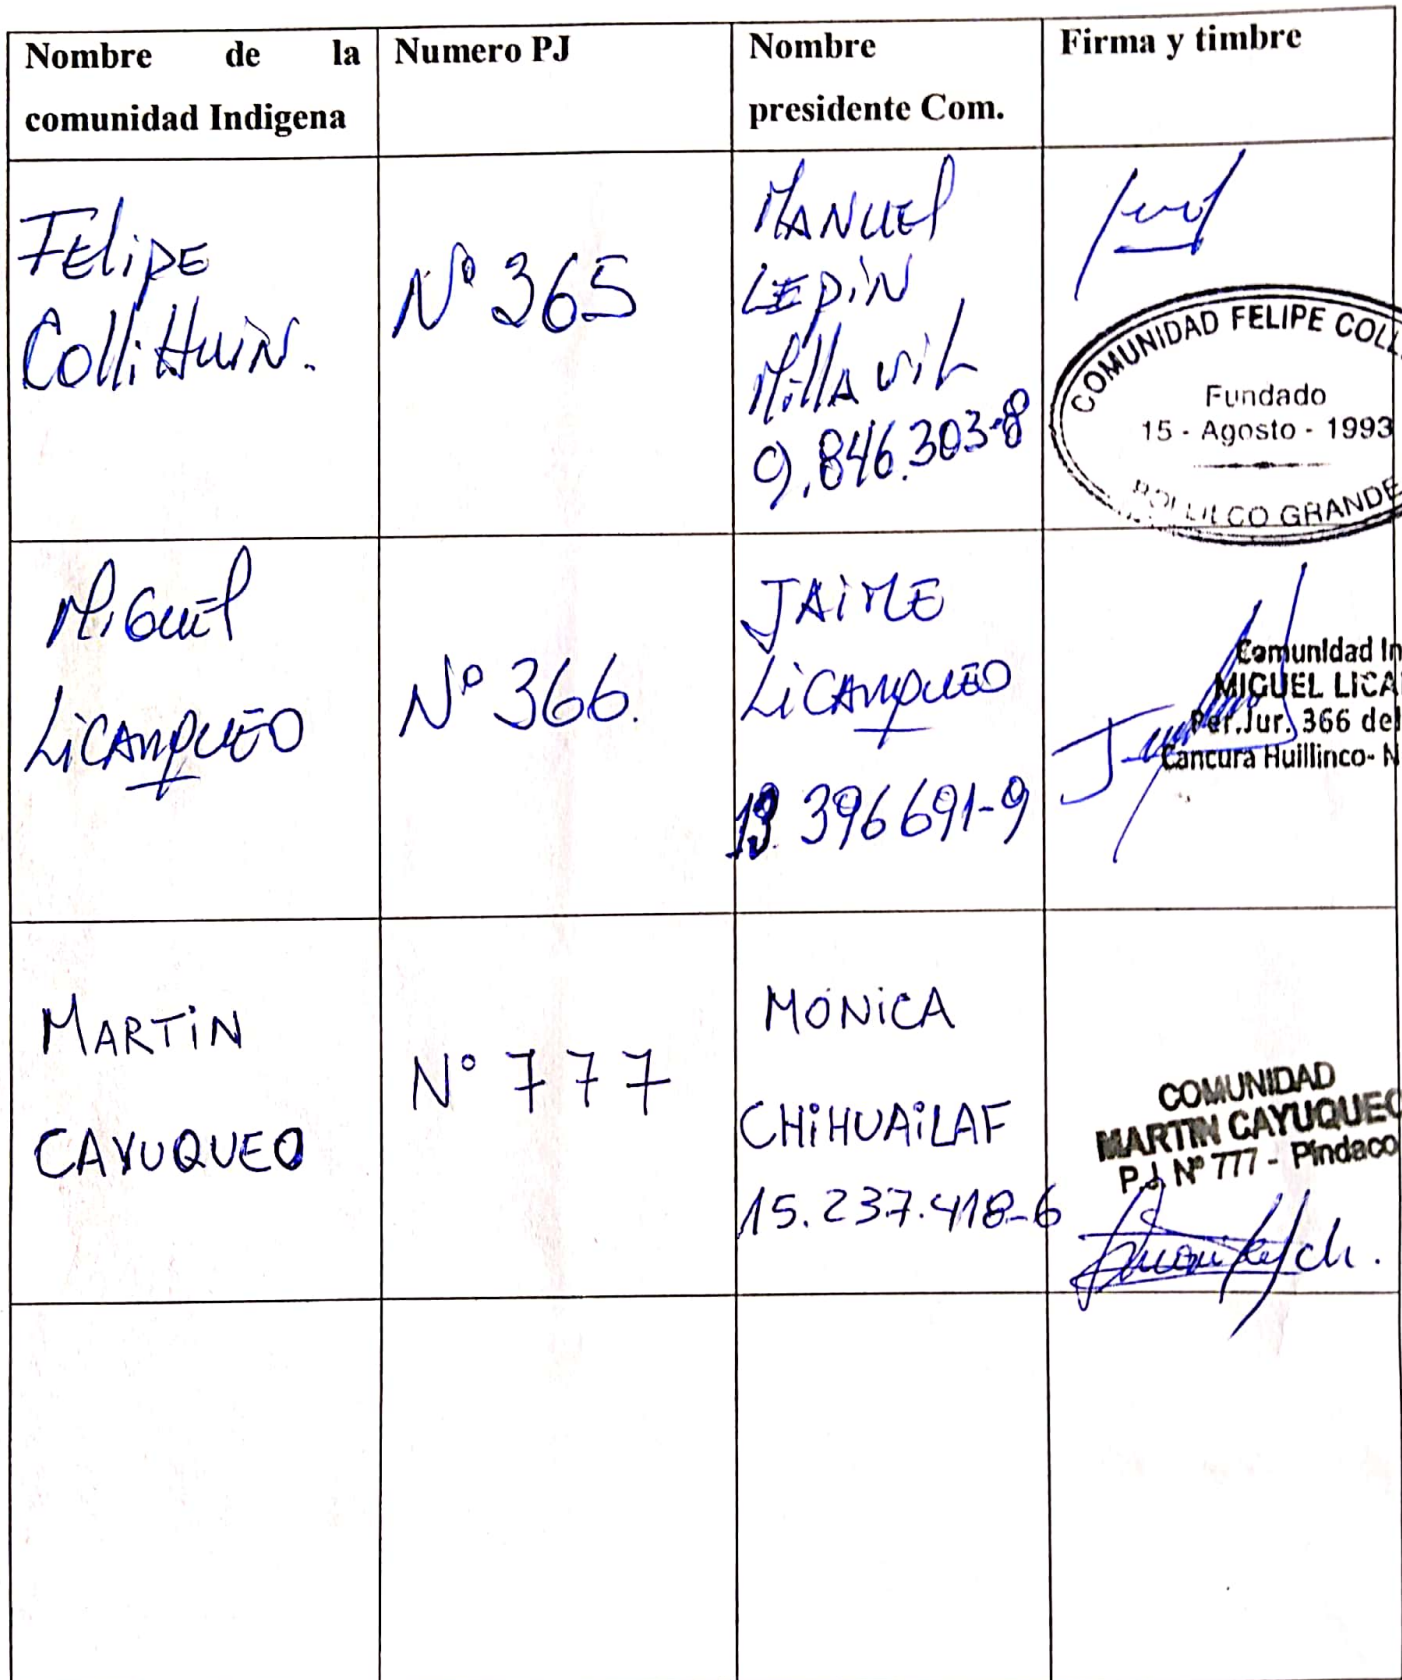 Nombre de la
comunidad Indigena
Numero PJ
Nombre
presidente Com.
Firma y timbre
FEliPE
ColliHuiN.
Nº 365
MANuEl
LEPiN
MillAviL
9.846.303-8
COMUNIDAD FELIPE COLL
Fundado
15 - Agosto - 1993
GRANDE
MiGuEl
LiCANQUEO
Nº 366.
JAiME
LiCANQUEO
13 396691-9
Comunidad In
MIGUEL LICA
Per.Jur. 366 del
Cancura Huillinco- N
MARTiN
CAYUQUEO
N° 777
MONiCA
CHiHUAiLAF
15.237.418-6
COMUNIDAD
MARTIN CAYUQUEO
P.J. Nº 777 - Pindaco